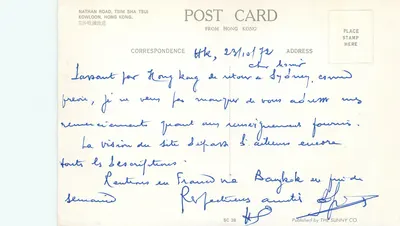 NATHAN ROAD, TSIM SHA TSUI
KOWLOON, HONG KONG.
POST CARD
FROM HONG KONG
PLACE
STAMP
HERE
CORRESPONDENCE
ADDRESS
Hk, 23/10/72
cher
Passant par Hong Kong de retour à Sydney, comme
prévu, je ne veux pas manquer de vous adresser mes
remerciements quant aux renseignements fournis.
La vision du site dépasse d'ailleurs encore
toutes les descriptions.
Rentrons en France via Bangkok en fin de
semaine
Respectueuses amitiés
SC 38
Published by THE SUNNY CO.